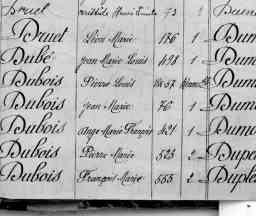 Druet 93 1
Druet Léon Marie 176 1 Dum
Dubé Jean Marie Louis 428 1 Dum
Dubois Pierre Louis 57 Dum
Dubois Jean Marie 76 1 Dum
Dubois Ange Marie François 421 1 Dumo
Dubois Pierre Marie 523 2 Dupe
Dubois François Marie 553 2 Duple